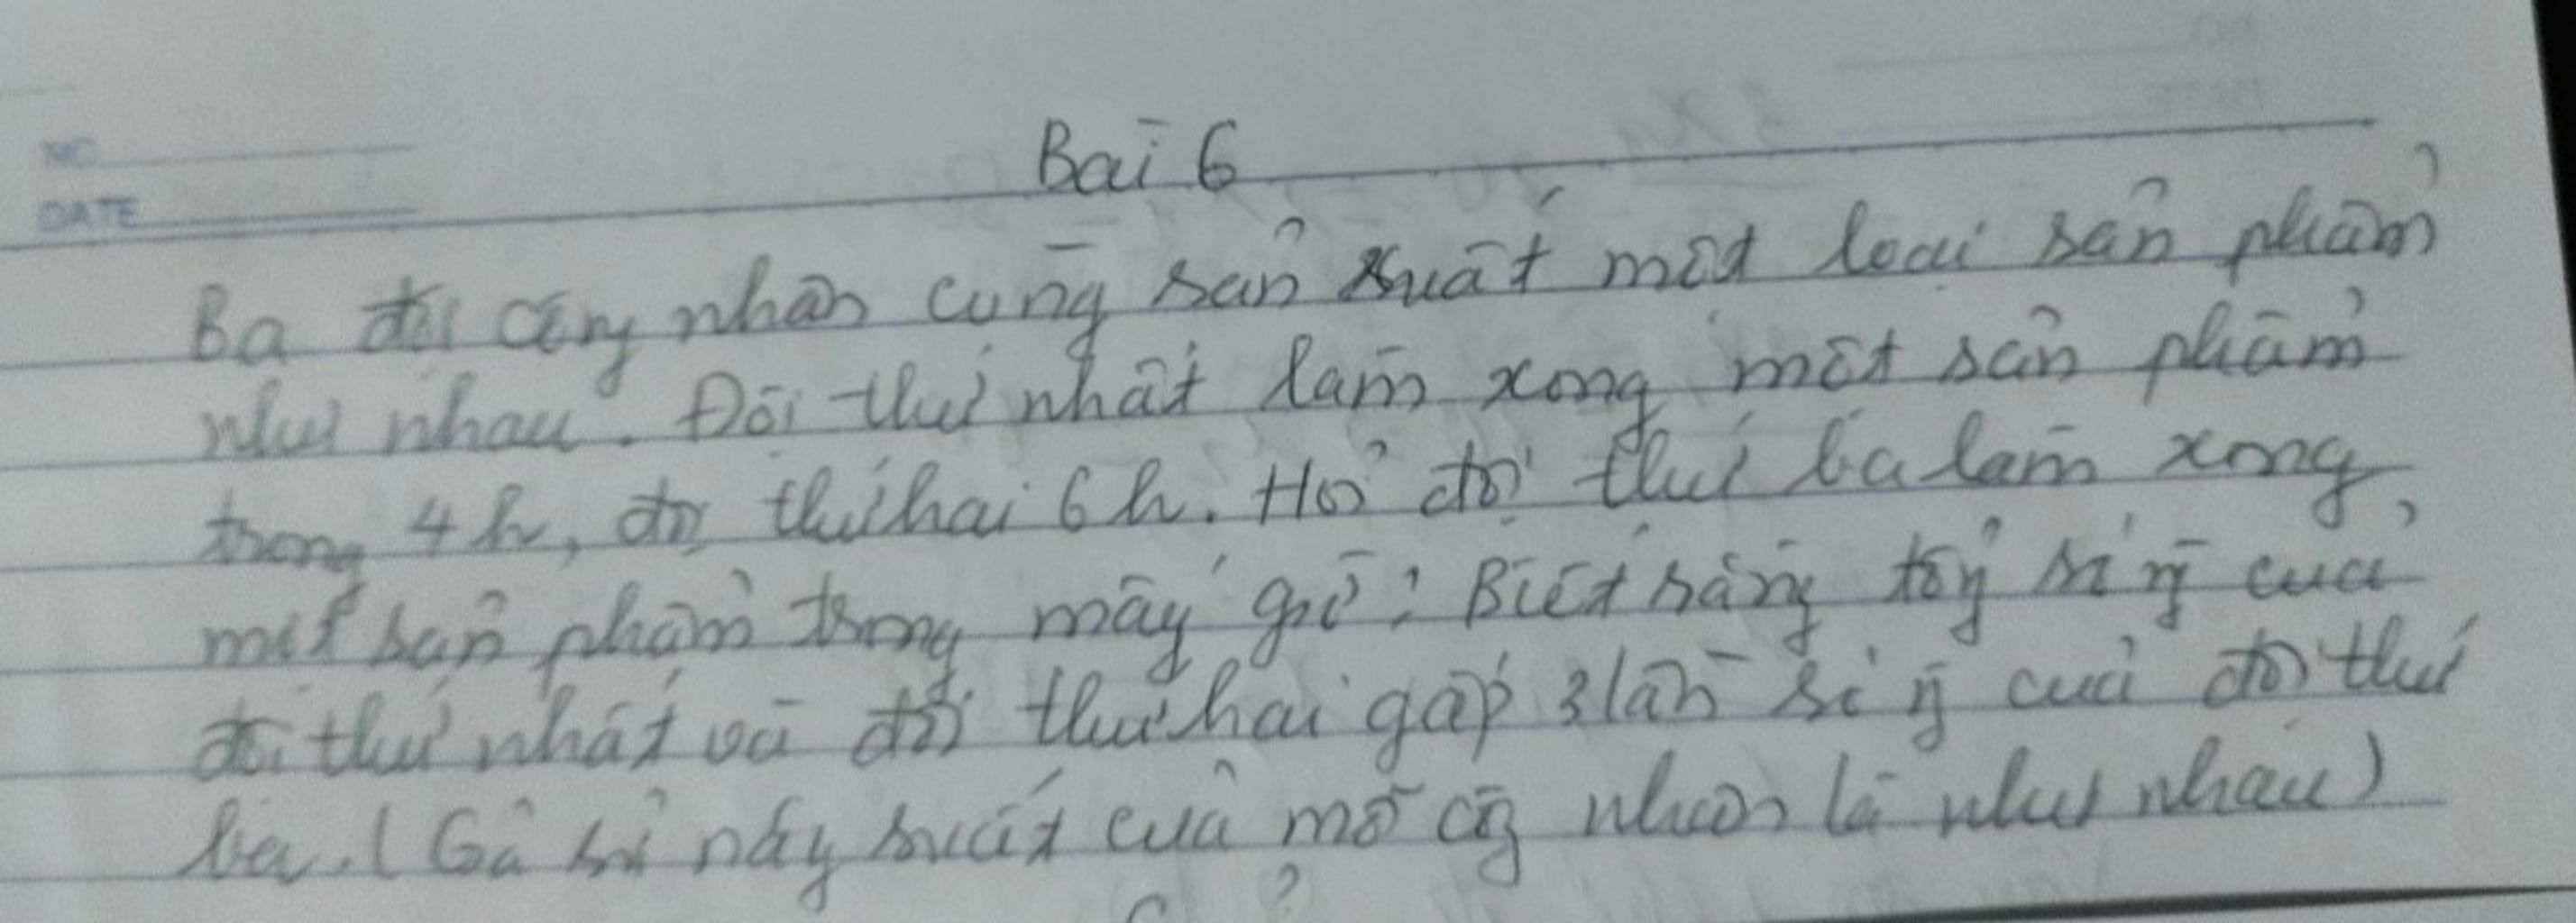 NO
DATE
Bài 6
Ba đội công nhân cùng sản xuất một loại sản phẩm
như nhau. Đội thứ nhất làm xong một sản phẩm
trong 4h, đội thứ hai 6h. Hỏi đội thứ ba làm xong
một sản phẩm trong mấy giờ? Biết rằng tổng số ng của
đội thứ nhất và đội thứ hai gấp 3 lần số ng của đội thứ
ba. (Gả sử năy suất của mỗ công nhân là như nhau)